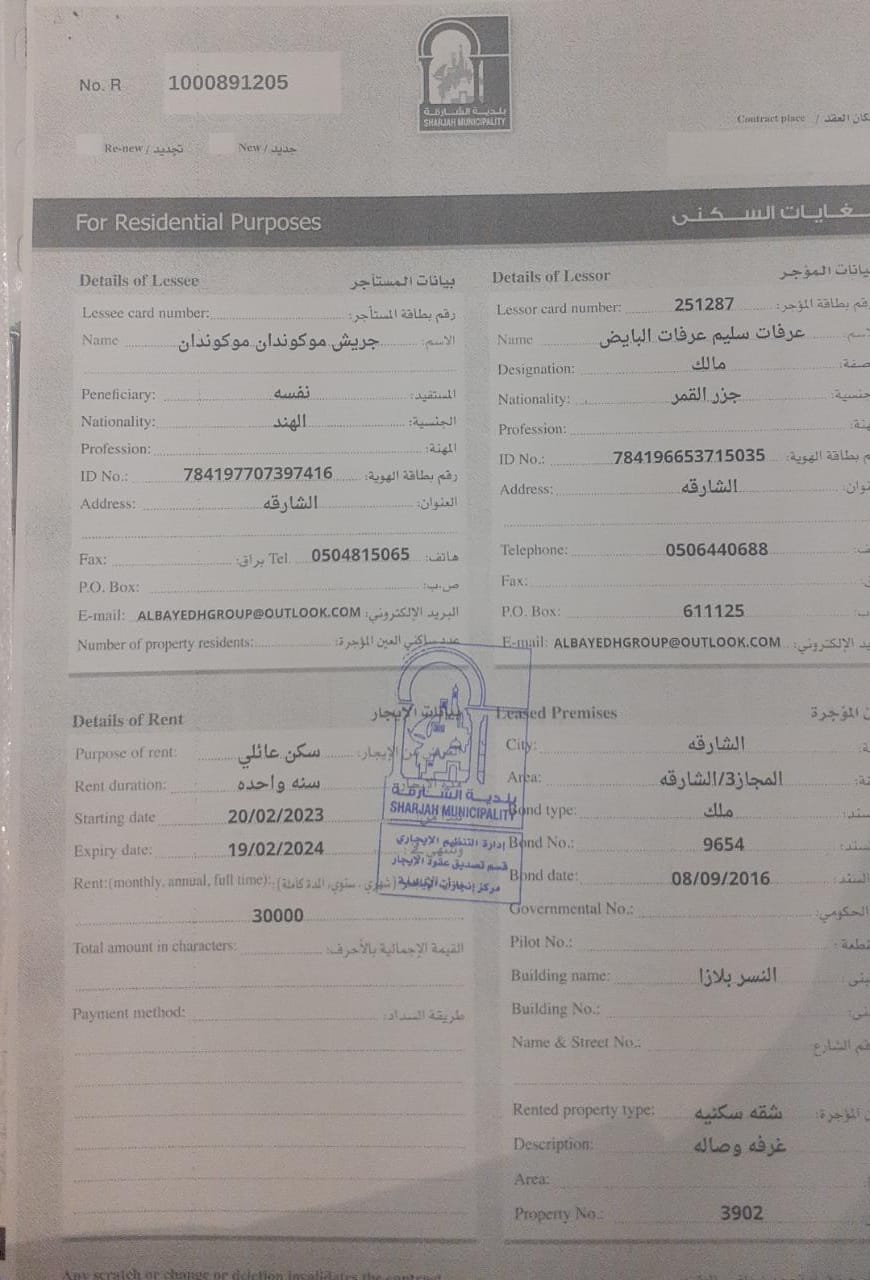 No. R 1000891205
بلدية الشارقة
SHARJAH MUNICIPALITY
Contract place / مكان العقد
Re-new / تجديد New / جديد
For Residential Purposes لغايات السكنى
Details of Lessee بيانات المستأجر
Lessee card number: رقم بطاقة المستأجر:
Name جريش موكوندان موكوندان الاسم:
Peneficiary: نفسه المستفيد:
Nationality: الهند الجنسية:
Profession: المهنة:
ID No.: 784197707397416 رقم بطاقة الهوية:
Address: الشارقه العنوان:
Fax: براق: Tel 0504815065 هاتف:
P.O. Box: ص.ب:
E-mail: ALBAYEDHGROUP@OUTLOOK.COM البريد الإلكتروني:
Number of property residents: عدد ساكني العين المؤجرة:
Details of Lessor بيانات المؤجر
Lessor card number: 251287 رقم بطاقة المؤجر:
Name عرفات سليم عرفات البايض
Designation: مالك
Nationality: جزر القمر
Profession:
ID No.: 784196653715035 بطاقة الهوية:
Address: الشارقه
Telephone: 0506440688
Fax:
P.O. Box: 611125
E-mail: ALBAYEDHGROUP@OUTLOOK.COM الإلكتروني:
Details of Rent بيانات الإيجار
Purpose of rent: سكن عائلي الغرض من الإيجار:
Rent duration: سنه واحده
Starting date 20/02/2023
Expiry date: 19/02/2024
Rent:(monthly, annual, full time): (شهري، سنوي، المدة كاملة)
30000
Total amount in characters: القيمة الإجمالية بالأحرف:
Payment method: طريقة السداد:
بلدية الشارقة
SHARJAH MUNICIPALITY
إدارة التنظيم الايجاري
قسم تصديق عقود الإيجار
Leased Premises المؤجرة
City: الشارقه
Area: المجاز3/الشارقه
Bond type: ملك
Bond No.: 9654
Bond date: 08/09/2016
Governmental No.: الحكومي:
Pilot No.:
Building name: النسر بلازا
Building No.:
Name & Street No.: الشارع
Rented property type: شقه سكنيه المؤجرة:
Description: غرفه وصاله
Area:
Property No.: 3902
Any scratch or change or deletion invalidates the contract